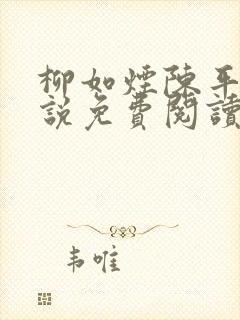 柳如煙陳平
說免費閱讀
韦唯